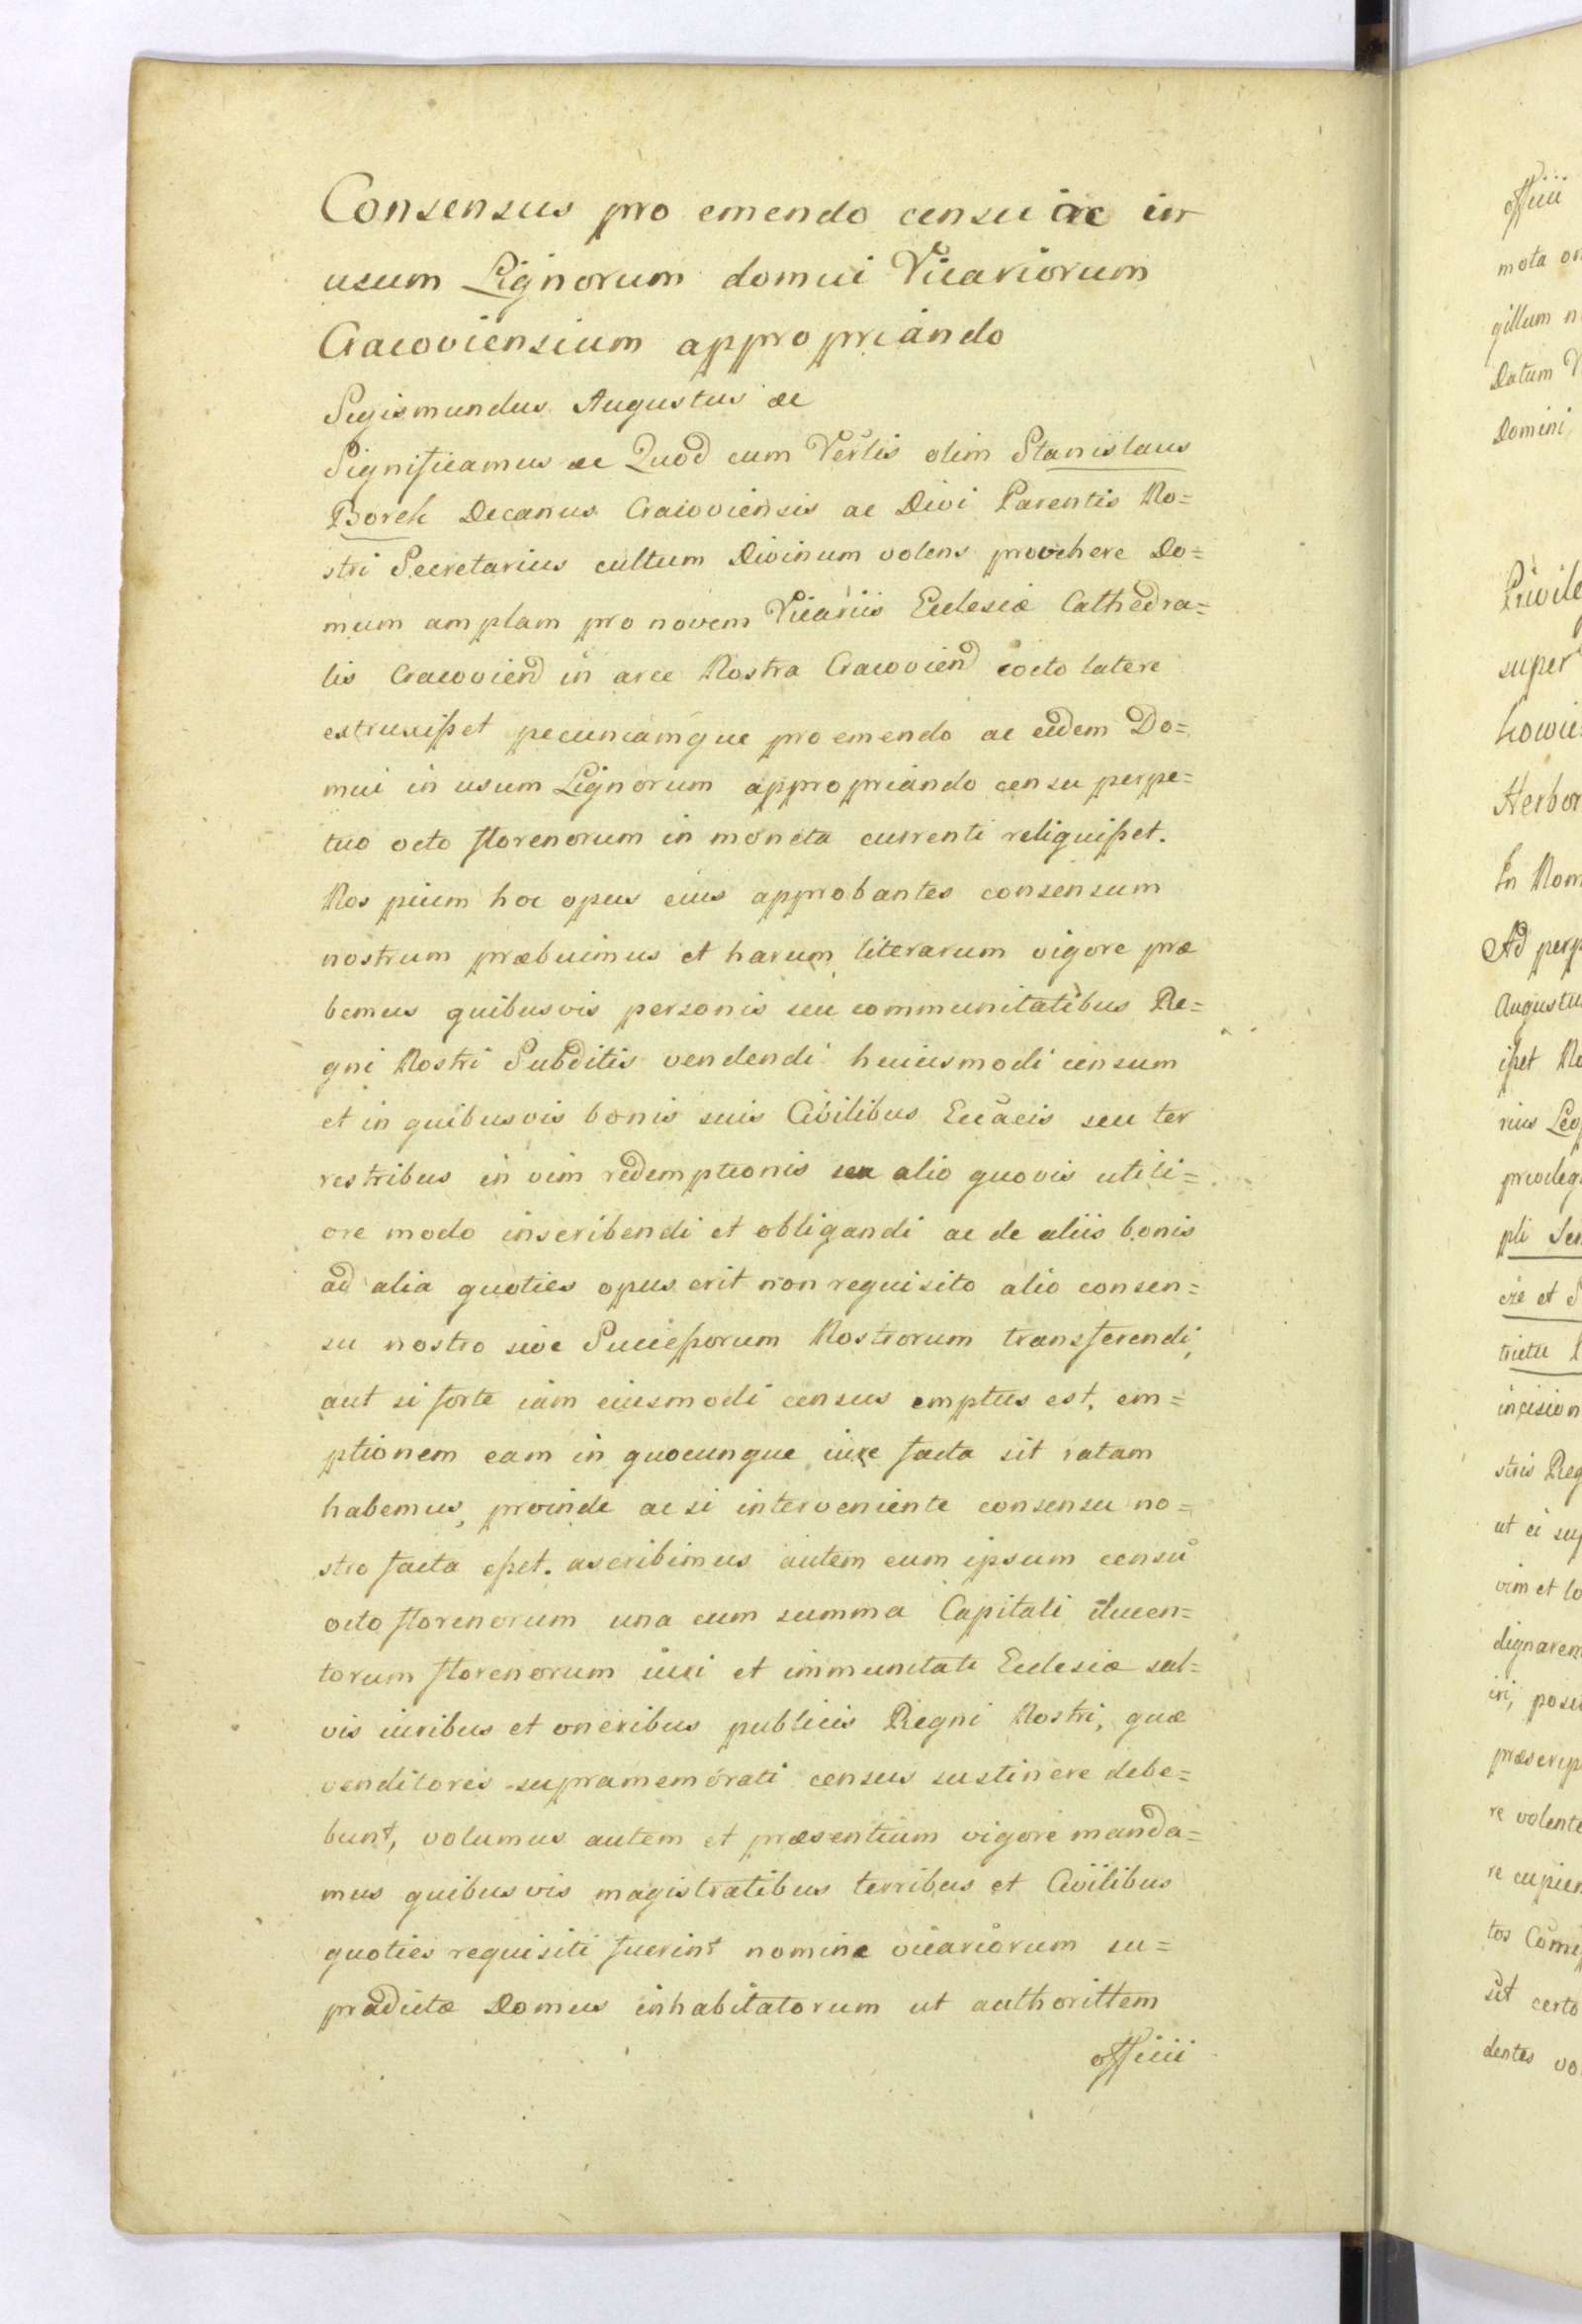 Consensus pro emendo censu ac in
usum Lignorum domui Vicariorum
Cracoviensium appropriando
Sigismundus Augustus &c
Significamus &c Quod cum Vērlis olim Stanislaus
Borek Decanus Cracoviensis ac Divi Parentis No=
stri Secretarius cultum Divinum volens provehere Do=
mum amplam pro novem Vicariis Ecclesiæ Cathedra=
lis Cracovien in arce Nostra Cracovien cocto latere
extruxißet pecuniamque pro emendo ac eidem Do=
mui in usum Lignorum appropriando censu perpe=
tuo octo florenorum in moneta currenti reliquißet.
Nos pium hoc opus eius approbantes consensum
nostrum præbuimus et harum literarum vigore præ
bemus quibusvis personis seu communitatibus Re=
gni Nostri Subditis vendendi huiusmodi censum
et in quibusvis bonis suis Civilibus Ecc̄acis seu ter
restribus in vim redemptionis seu alio quovis utili=
ore modo inscribendi et obligandi ac de aliis bonis
ad alia quoties opus erit non requisito alio consen=
su nostro sive Succeßorum Nostrorum transferendi,
aut si forte iam eiusmodi census emptus est, em=
ptionem eam in quocunque iure facta sit ratam
habemus, proinde ac si interveniente consensu no=
stro facta eßet. ascribimus autem eum ipsum censū
octo florenorum una cum summa Capitali ducen=
torum florenorum iuri et immunitati Ecclesiæ sal=
vis iuribus et oneribus publicis Regni Nostri, quæ
venditores supramemorati census sustinere debe=
bunt, volumus autem et præsentium vigore manda=
mus quibusvis magistratibus terribus et Civilibus
quoties requisiti fuerint nomine vicariorum su=
pradictæ Domus inhabitatorum ut authorittem
officii
officii
mota
gillum
Datum
Domini
super
Herbor
In Nom
Ad perp
Augustu
ißet
rius
pli
cie et
incision
stris Reg
ut ei sup
vim et lo
dignarem
iri, posu
præscrip
re volente
re cupien
tos
sit certo
dentes vo